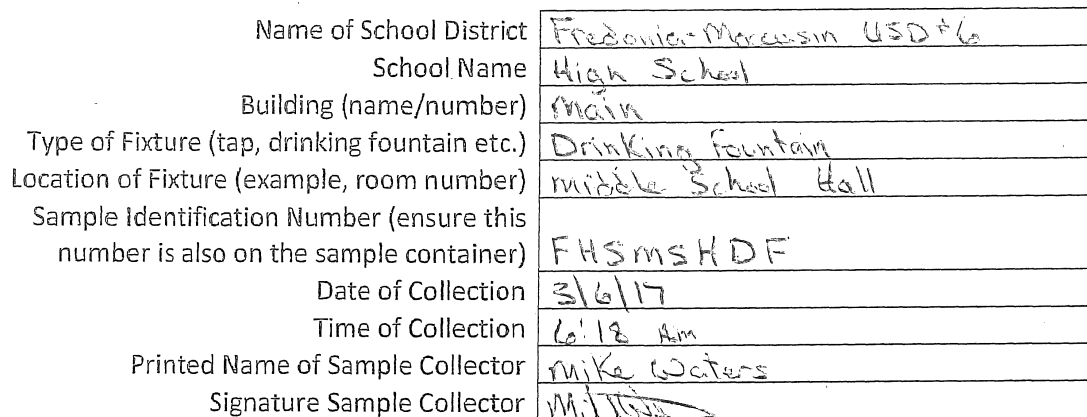 Name of School District Fredonia-Moccasin USD #6
School Name High School
Building (name/number) Main
Type of Fixture (tap, drinking fountain etc.) Drinking Fountain
Location of Fixture (example, room number) Middle School Hall
Sample Identification Number (ensure this
number is also on the sample container) FHSMSHDF
Date of Collection 3/6/17
Time of Collection 6:18 Am
Printed Name of Sample Collector Mike Waters
Signature Sample Collector